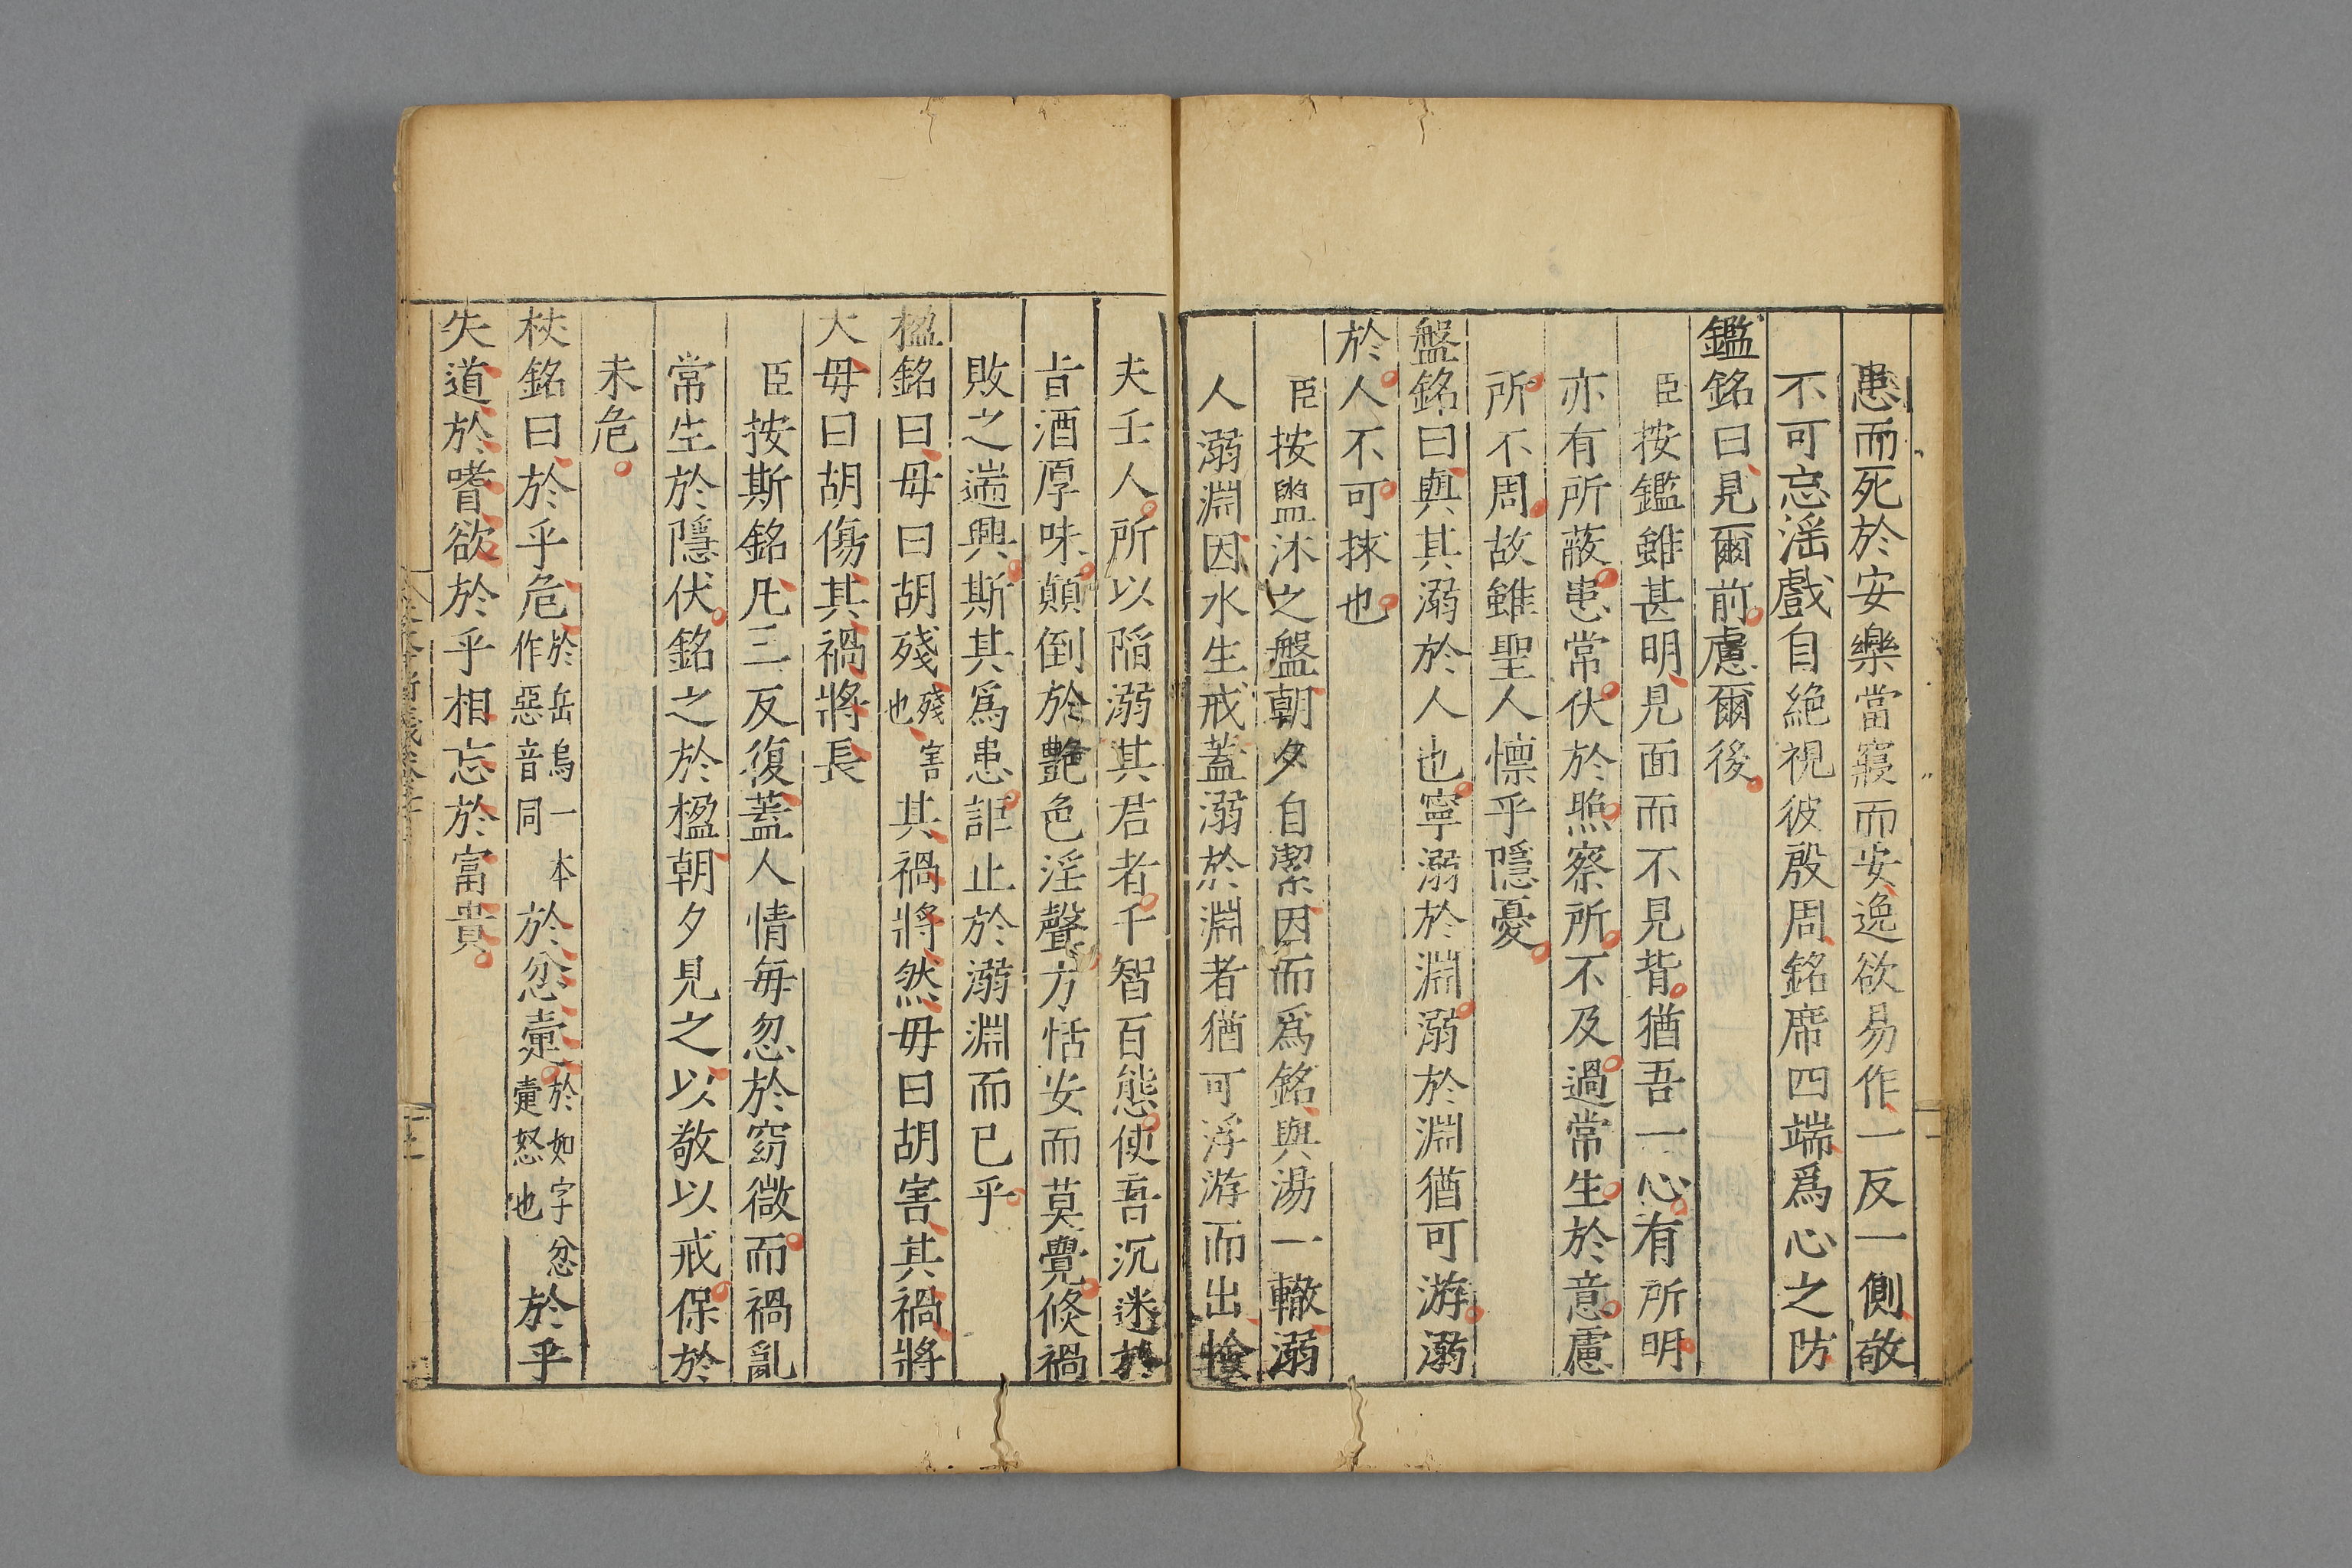 患而死於安樂當寢而安逸欲易作一反一側敬
不可忘滛戲自絶視彼殷周銘席四端爲心之防
鑑銘曰見爾前慮爾後
臣按鑑雖甚明見面而不見背猶吾一心有所明
亦有所蔽患常伏於照察所不及過常生於意慮
所不周故雖聖人懔乎隱憂
盤銘曰與其溺於人也寧溺於淵溺於淵猶可游溺
於人不可捄也
臣按盥沐之盤朝夕自潔因而爲銘與湯一轍溺
人溺淵因水生戒蓋溺於淵者猶可浮游而出憸
夫壬人所以陷溺其君者千智百態使吾沉迷於
旨酒厚味顛倒於艷色淫聲方恬安而莫覺倐禍
敗之遄興斯其爲患詎止於溺淵而已乎
楹銘曰毋曰胡殘殘害也其禍將然毋曰胡害其禍將
大毋曰胡傷其禍將長
臣按斯銘凡三反復蓋人情每忽於窈微而禍亂
常生於隱伏銘之於楹朝夕見之以敬以戒保於
未危
杖銘曰於乎危於岳烏一本作惡音同於忿疐於如字忿疐怒也於乎
失道於嗜欲於乎相忘於富貴